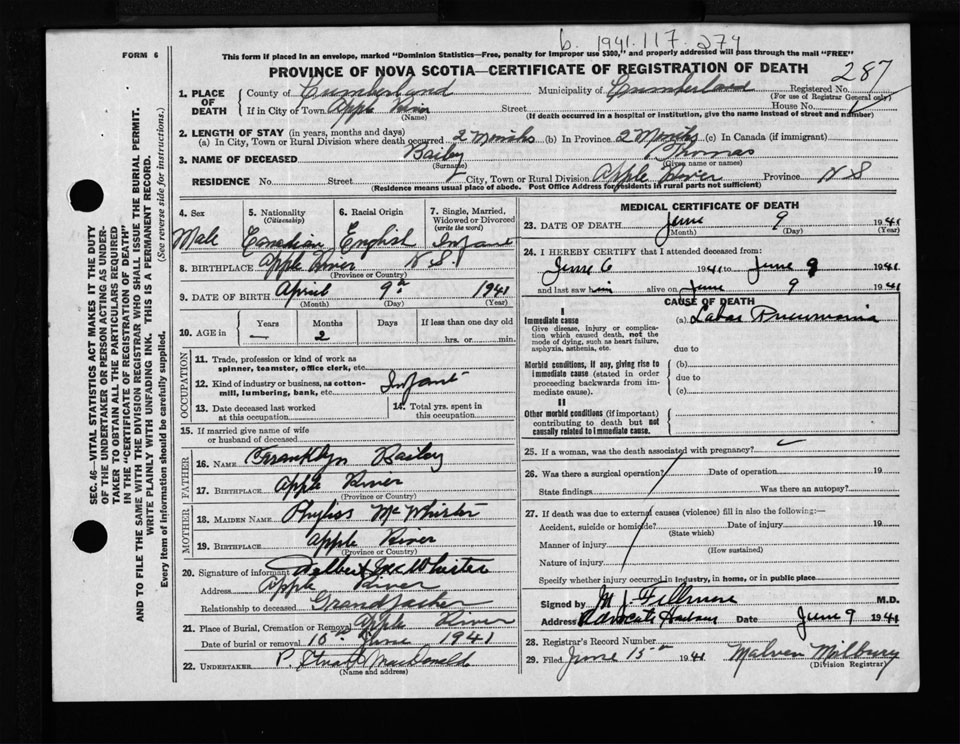 b. 1941.117.274
FORM 6
This form if placed in an envelope, marked "Dominion Statistics—Free, penalty for improper use $300," and properly addressed will pass through the mail "FREE"
PROVINCE OF NOVA SCOTIA—CERTIFICATE OF REGISTRATION OF DEATH
287
1. PLACE OF DEATH County of Cumberland Municipality of Cumberland Registered No. (For use of Registrar General only)
If in City or Town Apple River (Name) Street House No.
(If death occurred in a hospital or institution, give the name instead of street and number)
2. LENGTH OF STAY (in years, months and days)
(a) In City, Town or Rural Division where death occurred 2 Months (b) In Province 2 Months (c) In Canada (if immigrant)
3. NAME OF DECEASED Bailey (Surname) Thomas (Given name or names)
RESIDENCE No. Street City, Town or Rural Division Apple River Province N S
(Residence means usual place of abode. Post Office Address for residents in rural parts not sufficient)
4. Sex Male
5. Nationality (Citizenship) Canadian
6. Racial Origin English
7. Single, Married, Widowed or Divorced (write the word) Infant
8. BIRTHPLACE Apple River N.S. (Province or Country)
9. DATE OF BIRTH April (Month) 9th (Day) 1941 (Year)
10. AGE in Years — Months 2 Days If less than one day old hrs. or min.
OCCUPATION
11. Trade, profession or kind of work as spinner, teamster, office clerk, etc.
12. Kind of industry or business, as cotton-mill, lumbering, bank, etc. Infant
13. Date deceased last worked at this occupation
14. Total yrs. spent in this occupation
15. If married give name of wife or husband of deceased
FATHER
16. NAME Franklyn Bailey
17. BIRTHPLACE Apple River (Province or Country)
MOTHER
18. MAIDEN NAME Phyliss McWhister
19. BIRTHPLACE Apple River (Province or Country)
20. Signature of informant Delbert McWhister
Address Apple River
Relationship to deceased Grandfather
21. Place of Burial, Cremation or Removal Apple River
Date of burial or removal 10th June 1941
22. UNDERTAKER P. Stuart MacDonald
(Name and address)
MEDICAL CERTIFICATE OF DEATH
23. DATE OF DEATH June (Month) 9 (Day) 1941 (Year)
24. I HEREBY CERTIFY that I attended deceased from:
June 6 1941 to June 9 1941
and last saw him alive on June 9 1941
CAUSE OF DEATH
I
Immediate cause (a) Lobar Pneumonia
Give disease, injury or complication which caused death, not the mode of dying, such as heart failure, asphyxia, asthenia, etc.
due to
Morbid conditions, if any, giving rise to immediate cause (stated in order proceeding backwards from immediate cause). (b)
due to
(c)
II
Other morbid conditions (if important) contributing to death but not causally related to immediate cause.
25. If a woman, was the death associated with pregnancy?
26. Was there a surgical operation? Date of operation 19
State findings Was there an autopsy?
27. If death was due to external causes (violence) fill in also the following:—
Accident, suicide or homicide? (State which) Date of injury 19
Manner of injury (How sustained)
Nature of injury
Specify whether injury occurred in industry, in home, or in public place
Signed by M J Fillmore M.D.
Address Advocate Harbour Date June 9 1941
28. Registrar's Record Number
29. Filed June 15th 1941 Malven Milbury
(Division Registrar)
SEC. 46—VITAL STATISTICS ACT MAKES IT THE DUTY
OF THE UNDERTAKER OR PERSON ACTING AS UNDER-
TAKER TO OBTAIN ALL THE PARTICULARS REQUIRED
IN THE "CERTIFICATE OF REGISTRATION OF DEATH"
AND TO FILE THE SAME WITH THE DIVISION REGISTRAR WHO SHALL ISSUE THE BURIAL PERMIT.
WRITE PLAINLY WITH UNFADING INK. THIS IS A PERMANENT RECORD.
Every item of information should be carefully supplied. (See reverse side for instructions.)